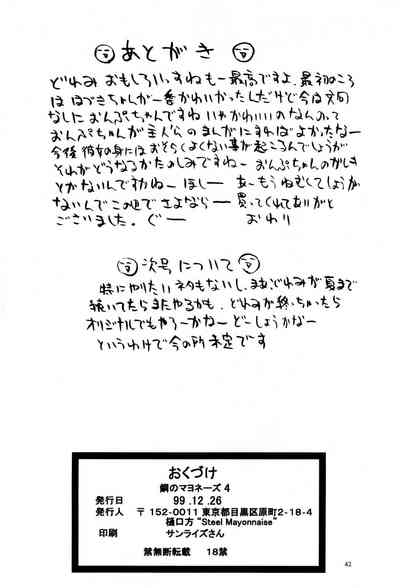 あとがき
どれみおもしろいっすねもー最高ですよ。最初のころ
ははづきちゃんが一番かわいかったしだけど今は文句
なしにおんぷちゃんですね いやかわいいのなんのって
おんぷちゃんが主人公のまんがにすればよかったなー
今後彼女の身にはおそらくよくない事が起ころんでしょうが
それがどうなるかたのしみですねー おんぷちゃんのがしき
とかないんですかねー ほしー あーもうねむくてしょうが
ないんでこの辺でさよならー 買ってくれてありがと
ございました。ぐー おわり
次号について
特にやりたいネタもないし、まあどれみが夏まで
続いてたらまたやるかも、どれみが終っちゃったら
オリジナルでもやろーかなー どーしようかなー
というわけで今の所未定です
おくづけ
鋼のマヨネーズ 4
発行日 99.12.26
発行人 〒152-0011 東京都目黒区原町2-18-4
樋口方 "Steel Mayonnaise"
印刷 サンライズさん
禁無断転載 18禁
42